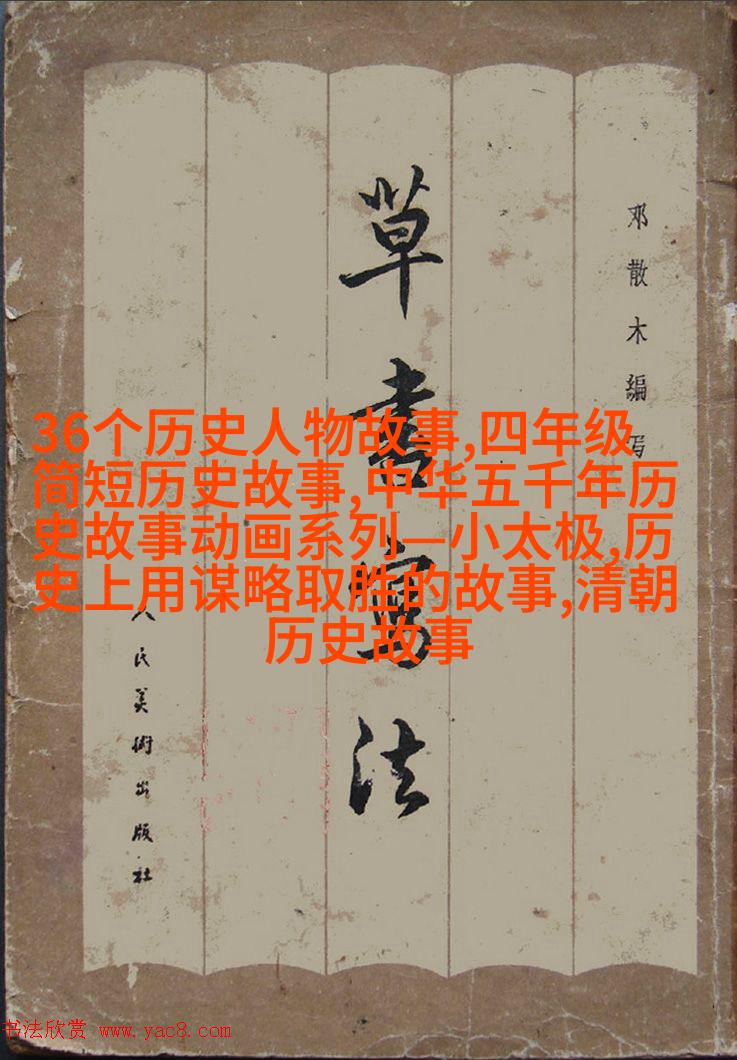 草書寫法
邓散木編写
36个历史人物故事,四年级
简短历史故事,中华五千年历
史故事动画系列—小太极,历
史上用谋略取胜的故事,清朝
历史故事
人民美術出版社
书法欣赏 www.yac8.com